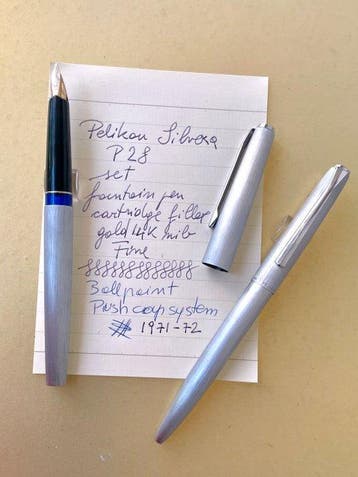 Pelikan Silvexa
P28
set
fountain pen
cartridge filler
gold 14K nib
Fine
Ballpoint
Push cap system
1971-72